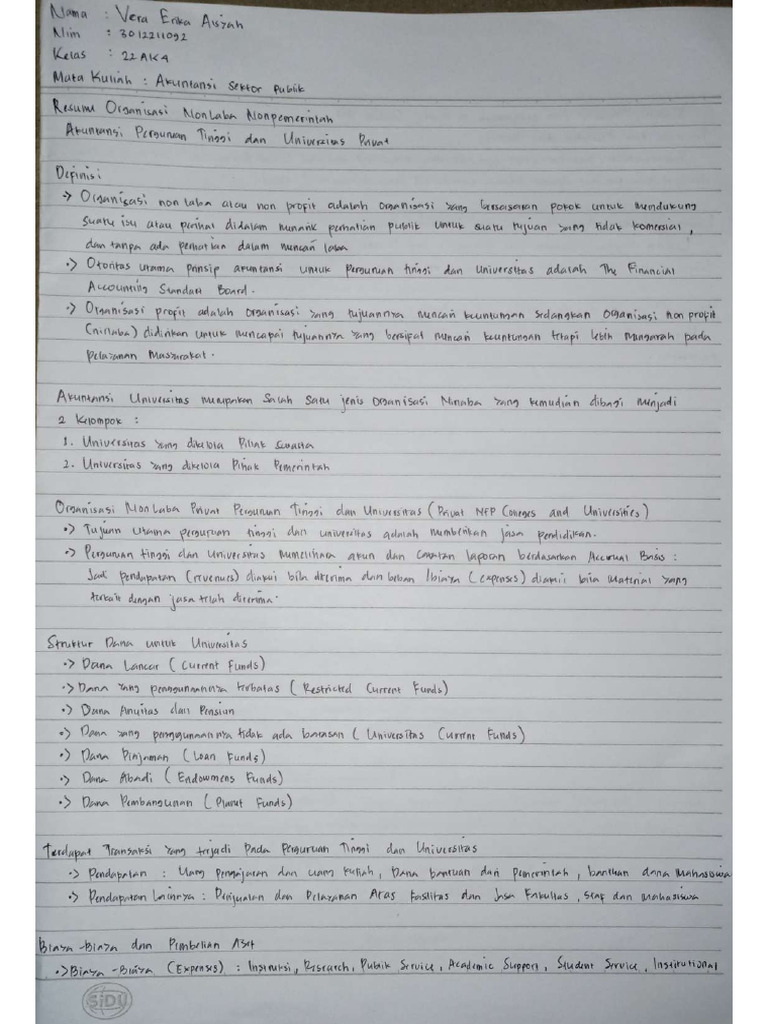 Nama : Vera Erika Aisyah
Nim : 3012211092
Kelas : 22 AK4
Mata Kuliah : Akuntansi Sektor Publik
Resume Organisasi Non Laba Nonpemerintah
Akuntansi Perguruan Tinggi dan Universitas Privat
Definisi
-> Organisasi non laba atau non profit adalah organisasi yang bersasaran pokok untuk mendukung
suatu isu atau perihal didalam menarik perhatian publik untuk suatu tujuan yang tidak komersial,
dan tanpa ada perhatian dalam mencari laba
-> Otoritas utama prinsip akuntansi untuk perguruan tinggi dan universitas adalah The Financial
Accounting Standart Board.
-> Organisasi profit adalah organisasi yang tujuannya mencari keuntungan sedangkan organisasi non profit
(nirlaba) didirikan untuk mencapai tujuannya yang bersipat mencari keuntungan tetapi lebih mengarah pada
pelayanan Masyarakat.
Akuntansi Universitas merupakan salah satu jenis Organisasi Nirlaba yang kemudian dibagi menjadi
2 Kelompok :
1. Universitas yang dikelola Pihak Swasta
2. Universitas yang dikelola Pihak Pemerintah
Organisasi Non Laba Privat Perguruan Tinggi dan Universitas (Privat NFP Coneges and Universities)
-> Tujuan utama perguruan tinggi dan universitas adalah memberikan jasa pendidikan.
-> Perguruan tinggi dan Universitas memelihara akun dan catatan laporan berdasarkan Accrual Basis :
Jadi pendapatan (revenues) diakui bila diterima dan beban /biaya (expenses) diakui bila material yang
terkait dengan jasa telah diterima.
Struktur Dana untuk Universitas
-> Dana Lancar (Current Funds)
-> Dana yang penggunaannya terbatas (Restricted Current Funds)
-> Dana Anuitas dan Pensiun
-> Dana yang penggunaannya tidak ada batasan (Universitas Current Funds)
-> Dana Pinjaman (Loan Funds)
-> Dana Abadi (Endowmens Funds)
-> Dana Pembangunan (Plant Funds)
Terdapat Transaksi yang terjadi pada Perguruan Tinggi dan Universitas
-> Pendapatan : Uang Pengajaran dan uang kuliah, Dana bantuan dari pemerintah, bantuan dana mahasiswa
-> Pendapatan Lainnya : Penjualan dan Pelayanan Atas Fasilitas dan Jasa Fakultas, staf dan mahasiswa
Biaya-Biaya dan Pembelian Aset
-> Biaya-Biaya (Expenses) : Instruksi, Research, Publik Service, Academic Support, Student Service, Institutional
SiDU